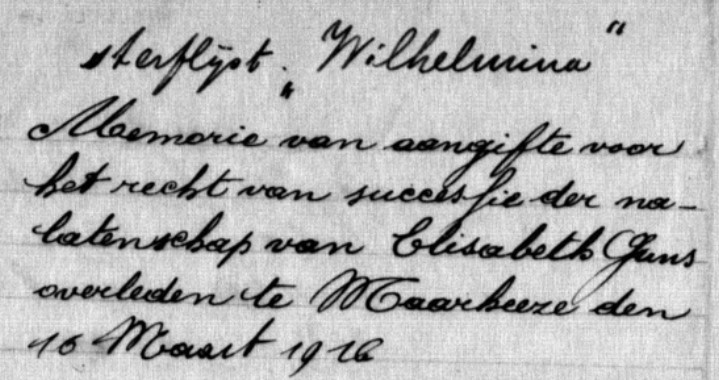 sterflijst. „Wilhelmina"
Memorie van aangifte voor
het recht van successie der na-
latenschap van Elisabeth
overleden te Maarheeze den
16 Maart 1916